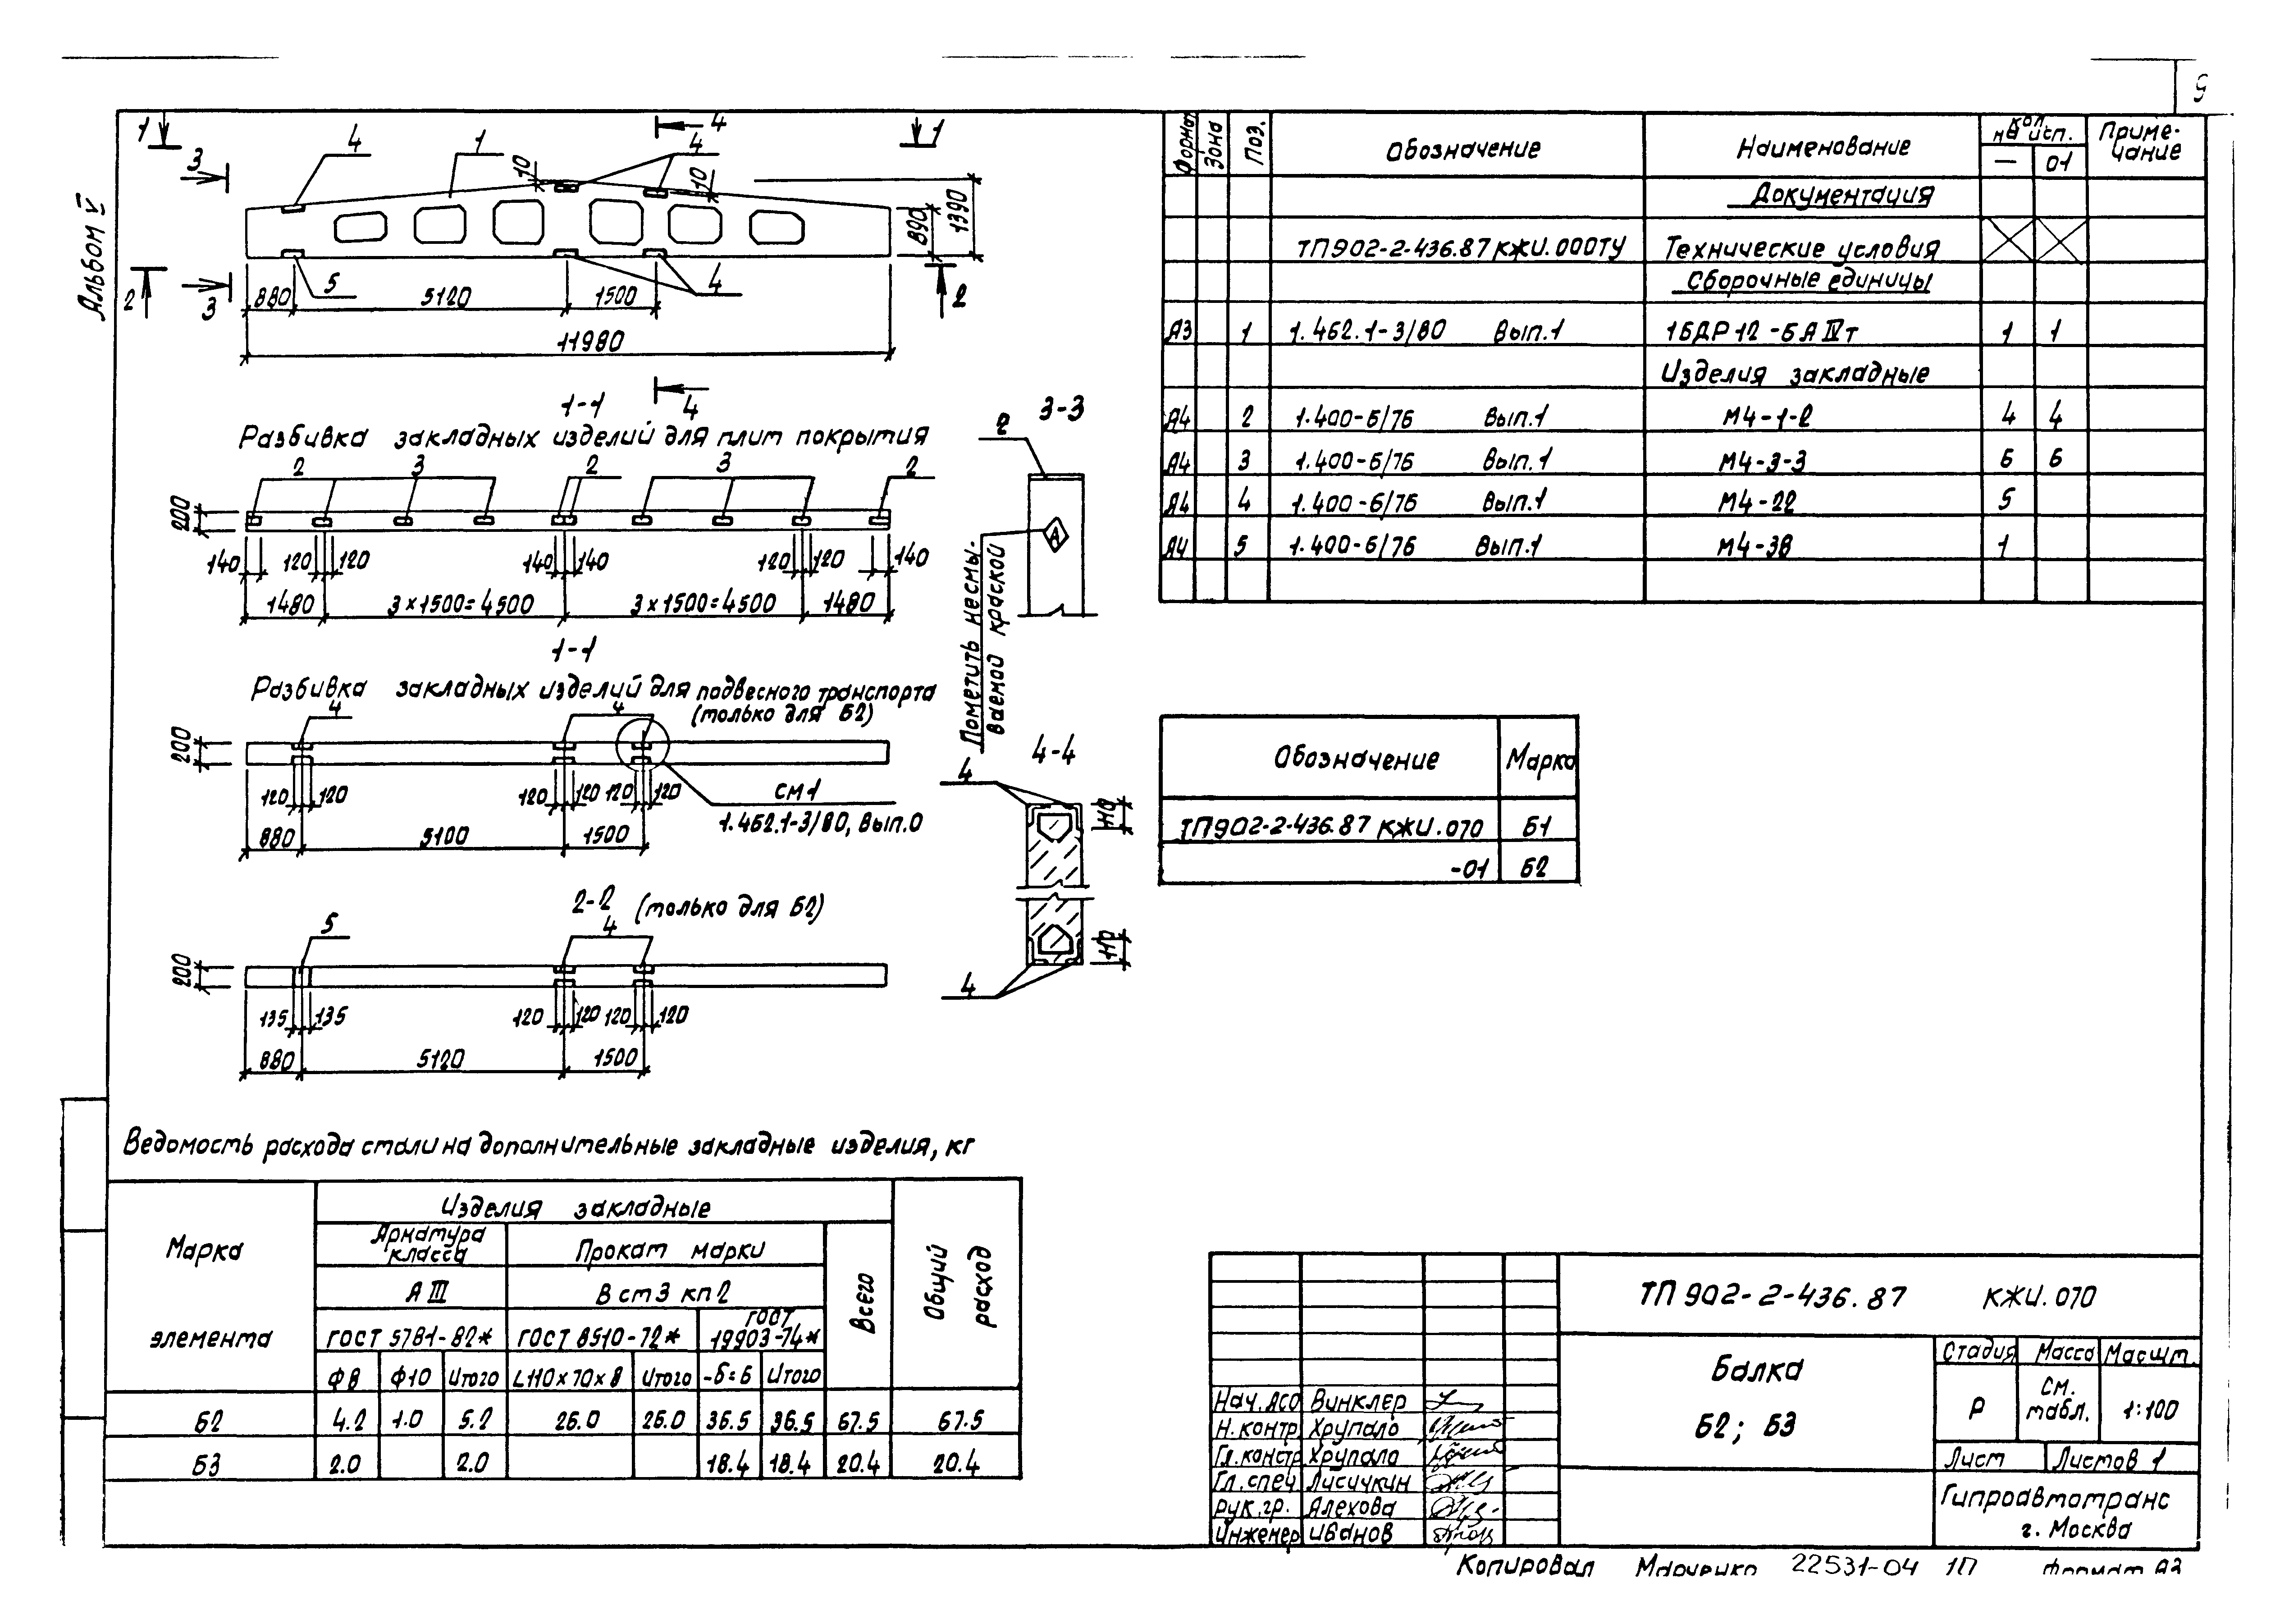 9
Альбом V
1 4 1 4 4 1
3 10 10
890 1390
2 3 880 5 5120 1500 4 2
11980
4
1-1
Разбивка закладных изделий для плит покрытия
2 3 2 3 2
200
140 120 120 140 140 120 120 140
1480 3×1500=4500 3×1500=4500 1480
1-1
Разбивка закладных изделий для подвесного транспорта
(только для Б2)
4 4
200
120 120 120 120 120 120
см 1
1.462.1-3/80, Вып.0
880 5100 1500
2-2 (только для Б2)
5 4
200
135 135 120 120 120 120
880 5120 1500
3-3
2
А
Пометить несмы-
ваемой краской
4-4
4
110
110
4
Формат Зона Поз. Обозначение Наименование Кол. на исп. Приме-
чание
— 01
Документация
ТП902-2-436.87 КЖИ.000ТУ Технические условия
Сборочные единицы
А3 1 1.462.1-3/80 Вып.1 1БДР12-6АIVт 1 1
Изделия закладные
А4 2 1.400-6/76 Вып.1 М4-1-2 4 4
А4 3 1.400-6/76 Вып.1 М4-3-3 6 6
А4 4 1.400-6/76 Вып.1 М4-22 5
А4 5 1.400-6/76 Вып.1 М4-38 1
Обозначение Марка
ТП902-2-436.87 КЖИ.070 Б1
-01 Б2
Ведомость расхода стали на дополнительные закладные изделия, кг
Марка
элемента
Изделия закладные
Арматура
класса
Прокат марки
Всего
Общий
расход
А III В ст3 кп2
ГОСТ 5781-82* ГОСТ 8510-72* ГОСТ
19903-74*
Ф8 Ф10 Итого L110×70×8 Итого -δ=6 Итого
Б2 4.2 1.0 5.2 26.0 26.0 36.5 36.5 67.5 67.5
Б3 2.0 2.0 18.4 18.4 20.4 20.4
ТП 902-2-436.87 КЖИ.070
Балка
Б2; Б3
Стадия Масса Масшт.
Р См.
табл. 1:100
Лист Листов 1
Гипроавтотранс
г. Москва
Нач. АСО Винклер
Н. контр. Хрупало
Гл. констр Хрупало
Гл. спец Лисичкин
Рук. гр. Алехова
Инженер Иванов
Копировал Марченко 22531-04 Формат А3